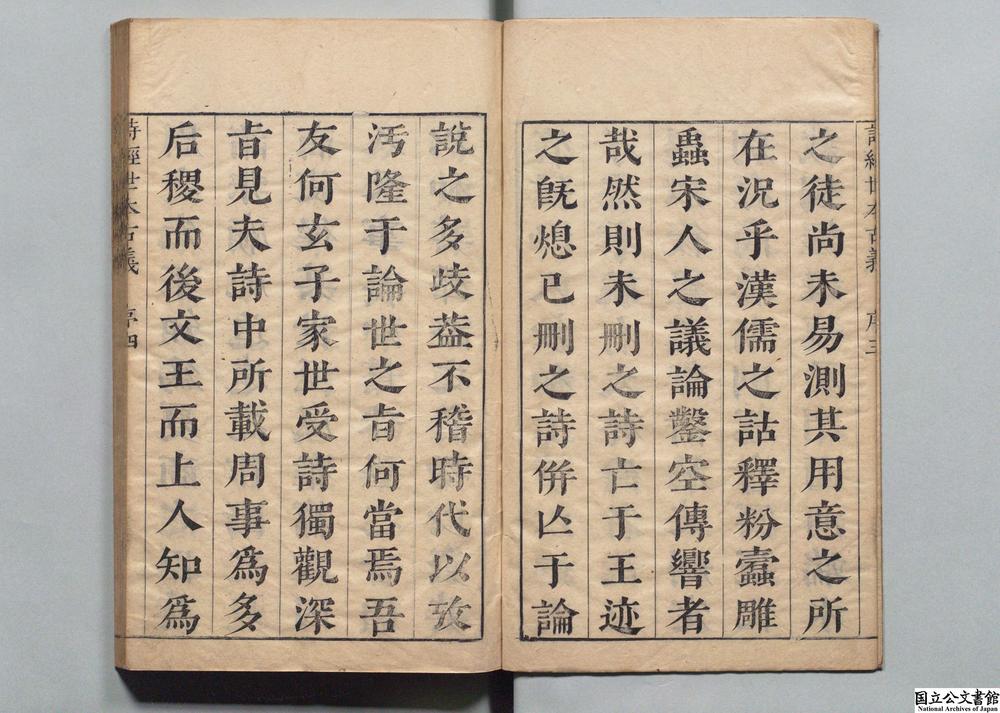 詩經世本古義 序三
之徒尚未易測其用意之所
在況乎漢儒之詁釋粉蠹雕
蟲宋人之議論鑿空傳響者
哉然則未刪之詩亡于王迹
之旣熄已刪之詩併亾于論
說之多歧葢不稽時代以攷
汚隆于論世之㫖何當焉吾
友何玄子家世受詩獨觀深
㫖見夫詩中所載周事爲多
后稷而後文王而上人知爲
詩經世本古義 序四
国立公文書館
National Archives of Japan